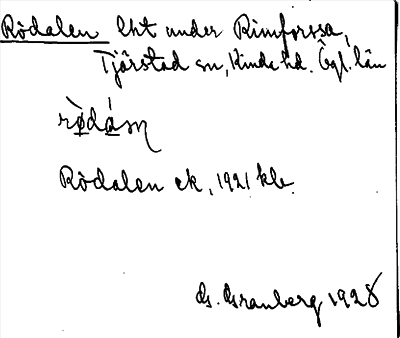 Rödalen lht under Rimforssa,
Tjärstad sn, Kinda hd. Ögl. län
Rödalen ek, 1921 kle
G. Granberg 1928